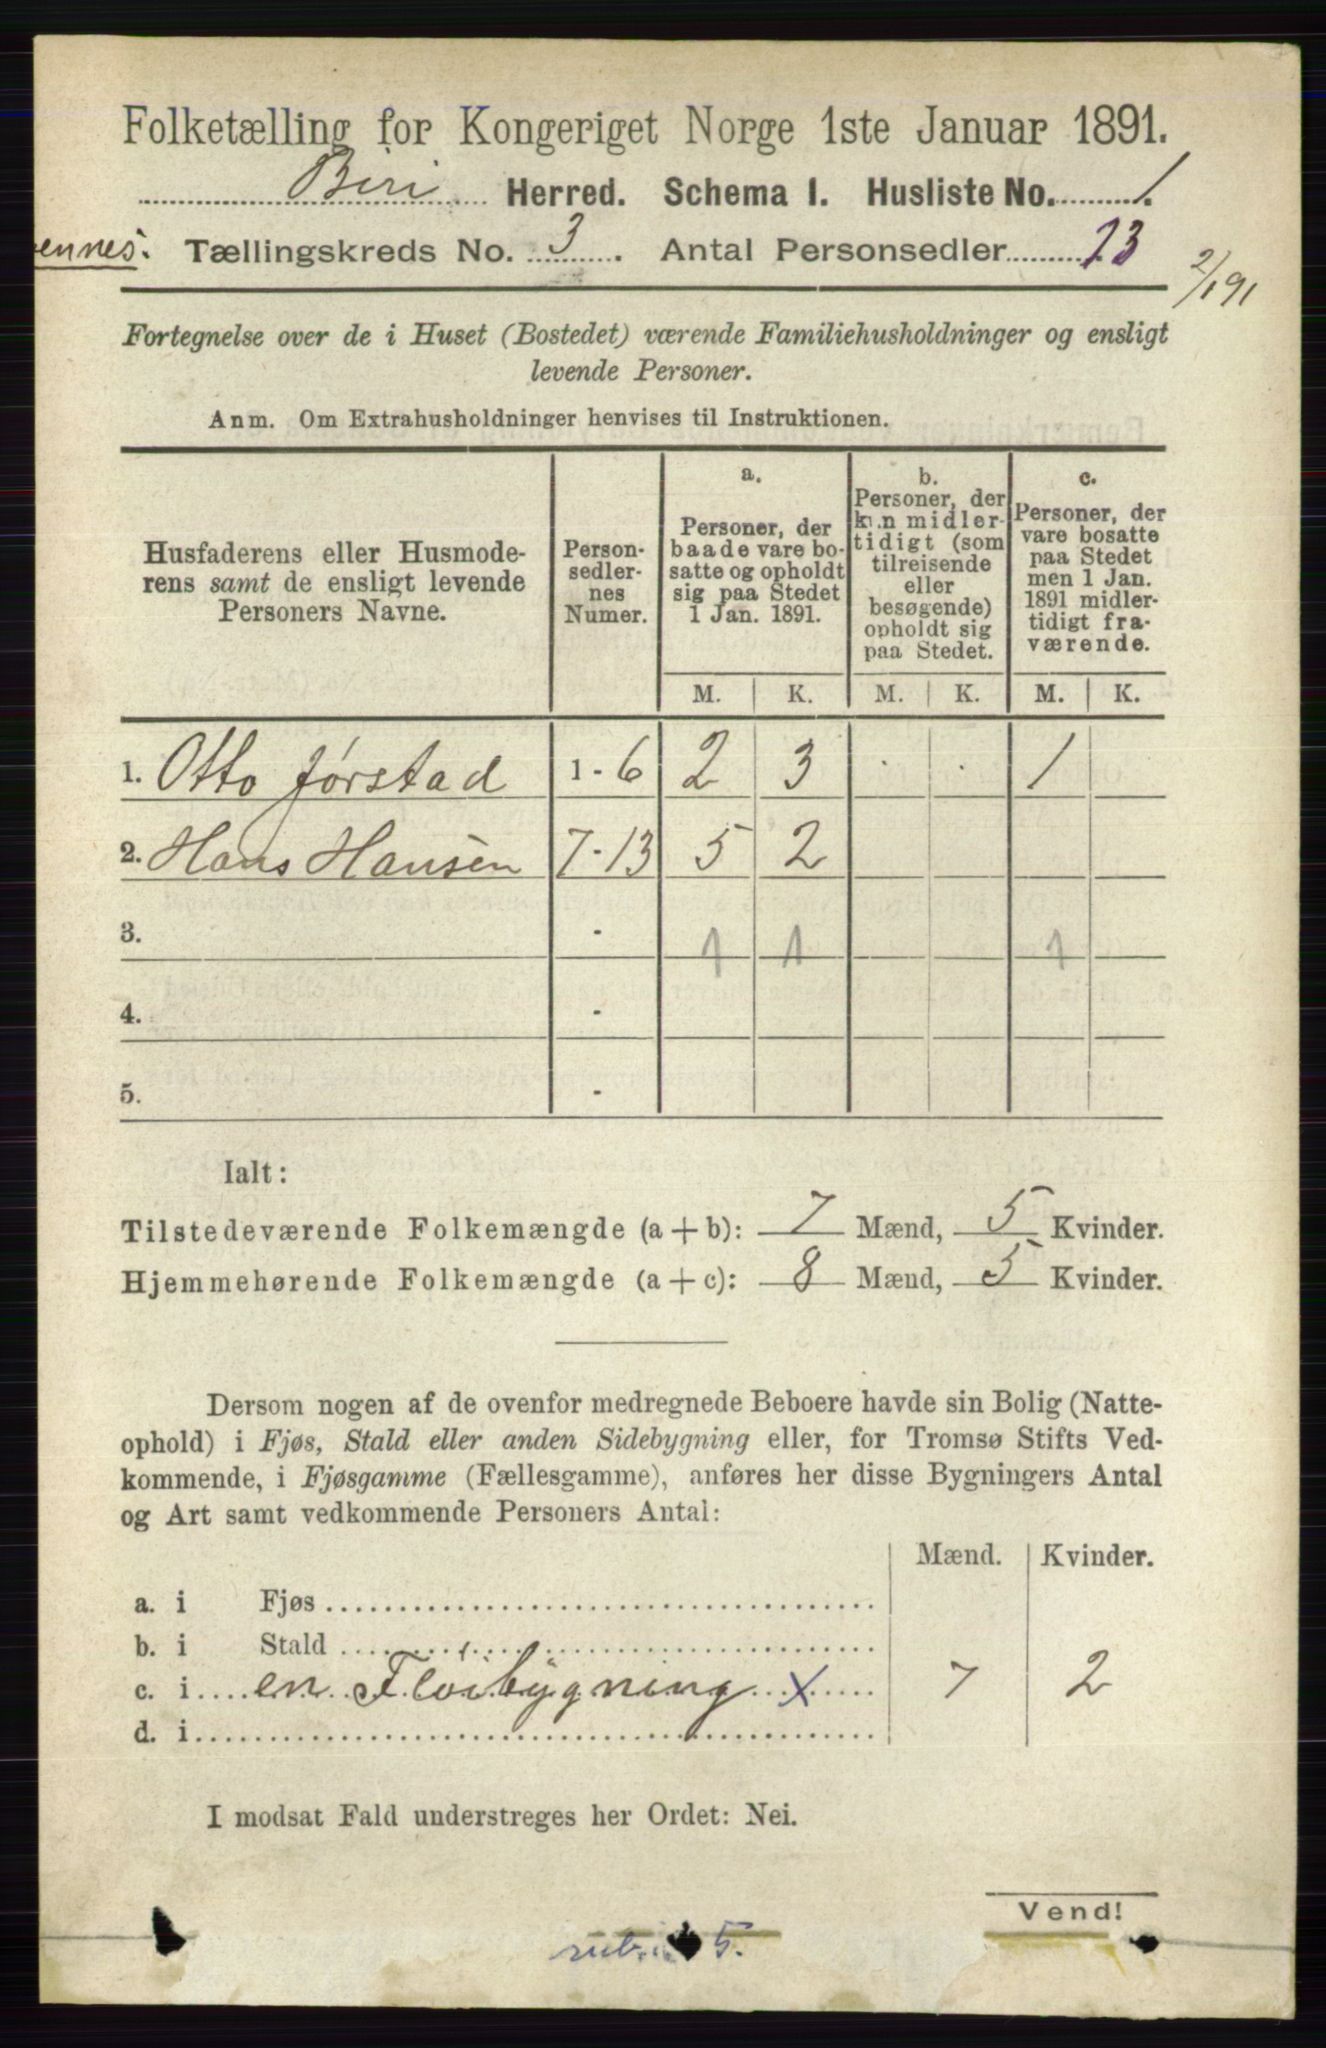 Folketælling for Kongeriget Norge 1ste Januar 1891.
Biri Herred. Schema I. Husliste No. 1.
Tællingskreds No. 3. Antal Personsedler 13
2/1 91
Fortegnelse over de i Huset (Bostedet) værende Familiehusholdninger og ensligt
levende Personer.
Anm. Om Extrahusholdninger henvises til Instruktionen.
Husfaderens eller Husmoderens samt de ensligt levende Personers Navne.
Personsedlernes Numer.
a. Personer, der baade vare bosatte og opholdt sig paa Stedet 1 Jan. 1891.
b. Personer, der kun midlertidigt (som tilreisende eller besøgende) opholdt sig paa Stedet.
c. Personer, der vare bosatte paa Stedet men 1 Jan. 1891 midlertidigt fraværende.
M. K. M. K. M. K.
1. Otto Jørstad 1-6 2 3 . . 1
2. Hans Hansen 7-13 5 2
3. - 1 1 1
4. -
5. -
Ialt:
Tilstedeværende Folkemængde (a + b): 7 Mænd, 5 Kvinder.
Hjemmehørende Folkemængde (a + c): 8 Mænd, 5 Kvinder.
Dersom nogen af de ovenfor medregnede Beboere havde sin Bolig (Natte-
ophold) i Fjøs, Stald eller anden Sidebygning eller, for Tromsø Stifts Ved-
kommende, i Fjøsgamme (Fællesgamme), anføres her disse Bygningers Antal
og Art samt vedkommende Personers Antal:
Mænd. Kvinder.
a. i Fjøs
b. i Stald
c. i en Fløibygning x 7 2
d. i
I modsat Fald understreges her Ordet: Nei.
Vend!
5.